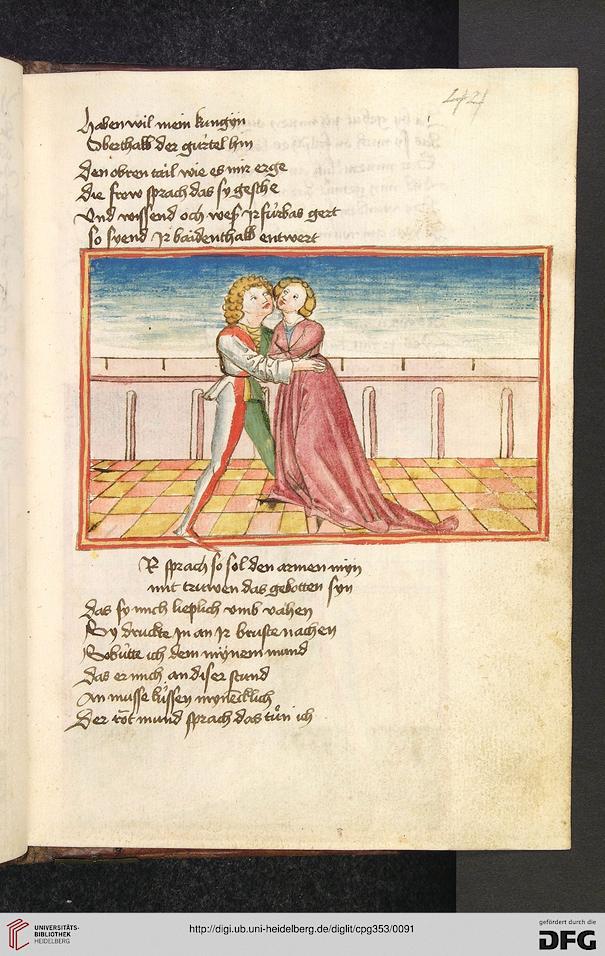 haben wil mein kungin
Oberthalb der gürtel hin
Den obren tail wie es mir erge
Die frow sprach das sy gesche
Vnd wissend och weß Ir fürbas gert
so syend Ir baidenthalb entwert
R sprach so sol den armen myn
mit truwen das gebotten syn
Das sy mich lieplich vmb vahen
Sy druckte In an Ir bruste nachen
So bütte ich dem mynem mund
Das er mich an diser stund
An musse küssen mynecklich
Der rot mund sprach das tůn ich
UNIVERSITÄTS-
BIBLIOTHEK
HEIDELBERG
http://digi.ub.uni-heidelberg.de/diglit/cpg353/0091
gefördert durch die
DFG